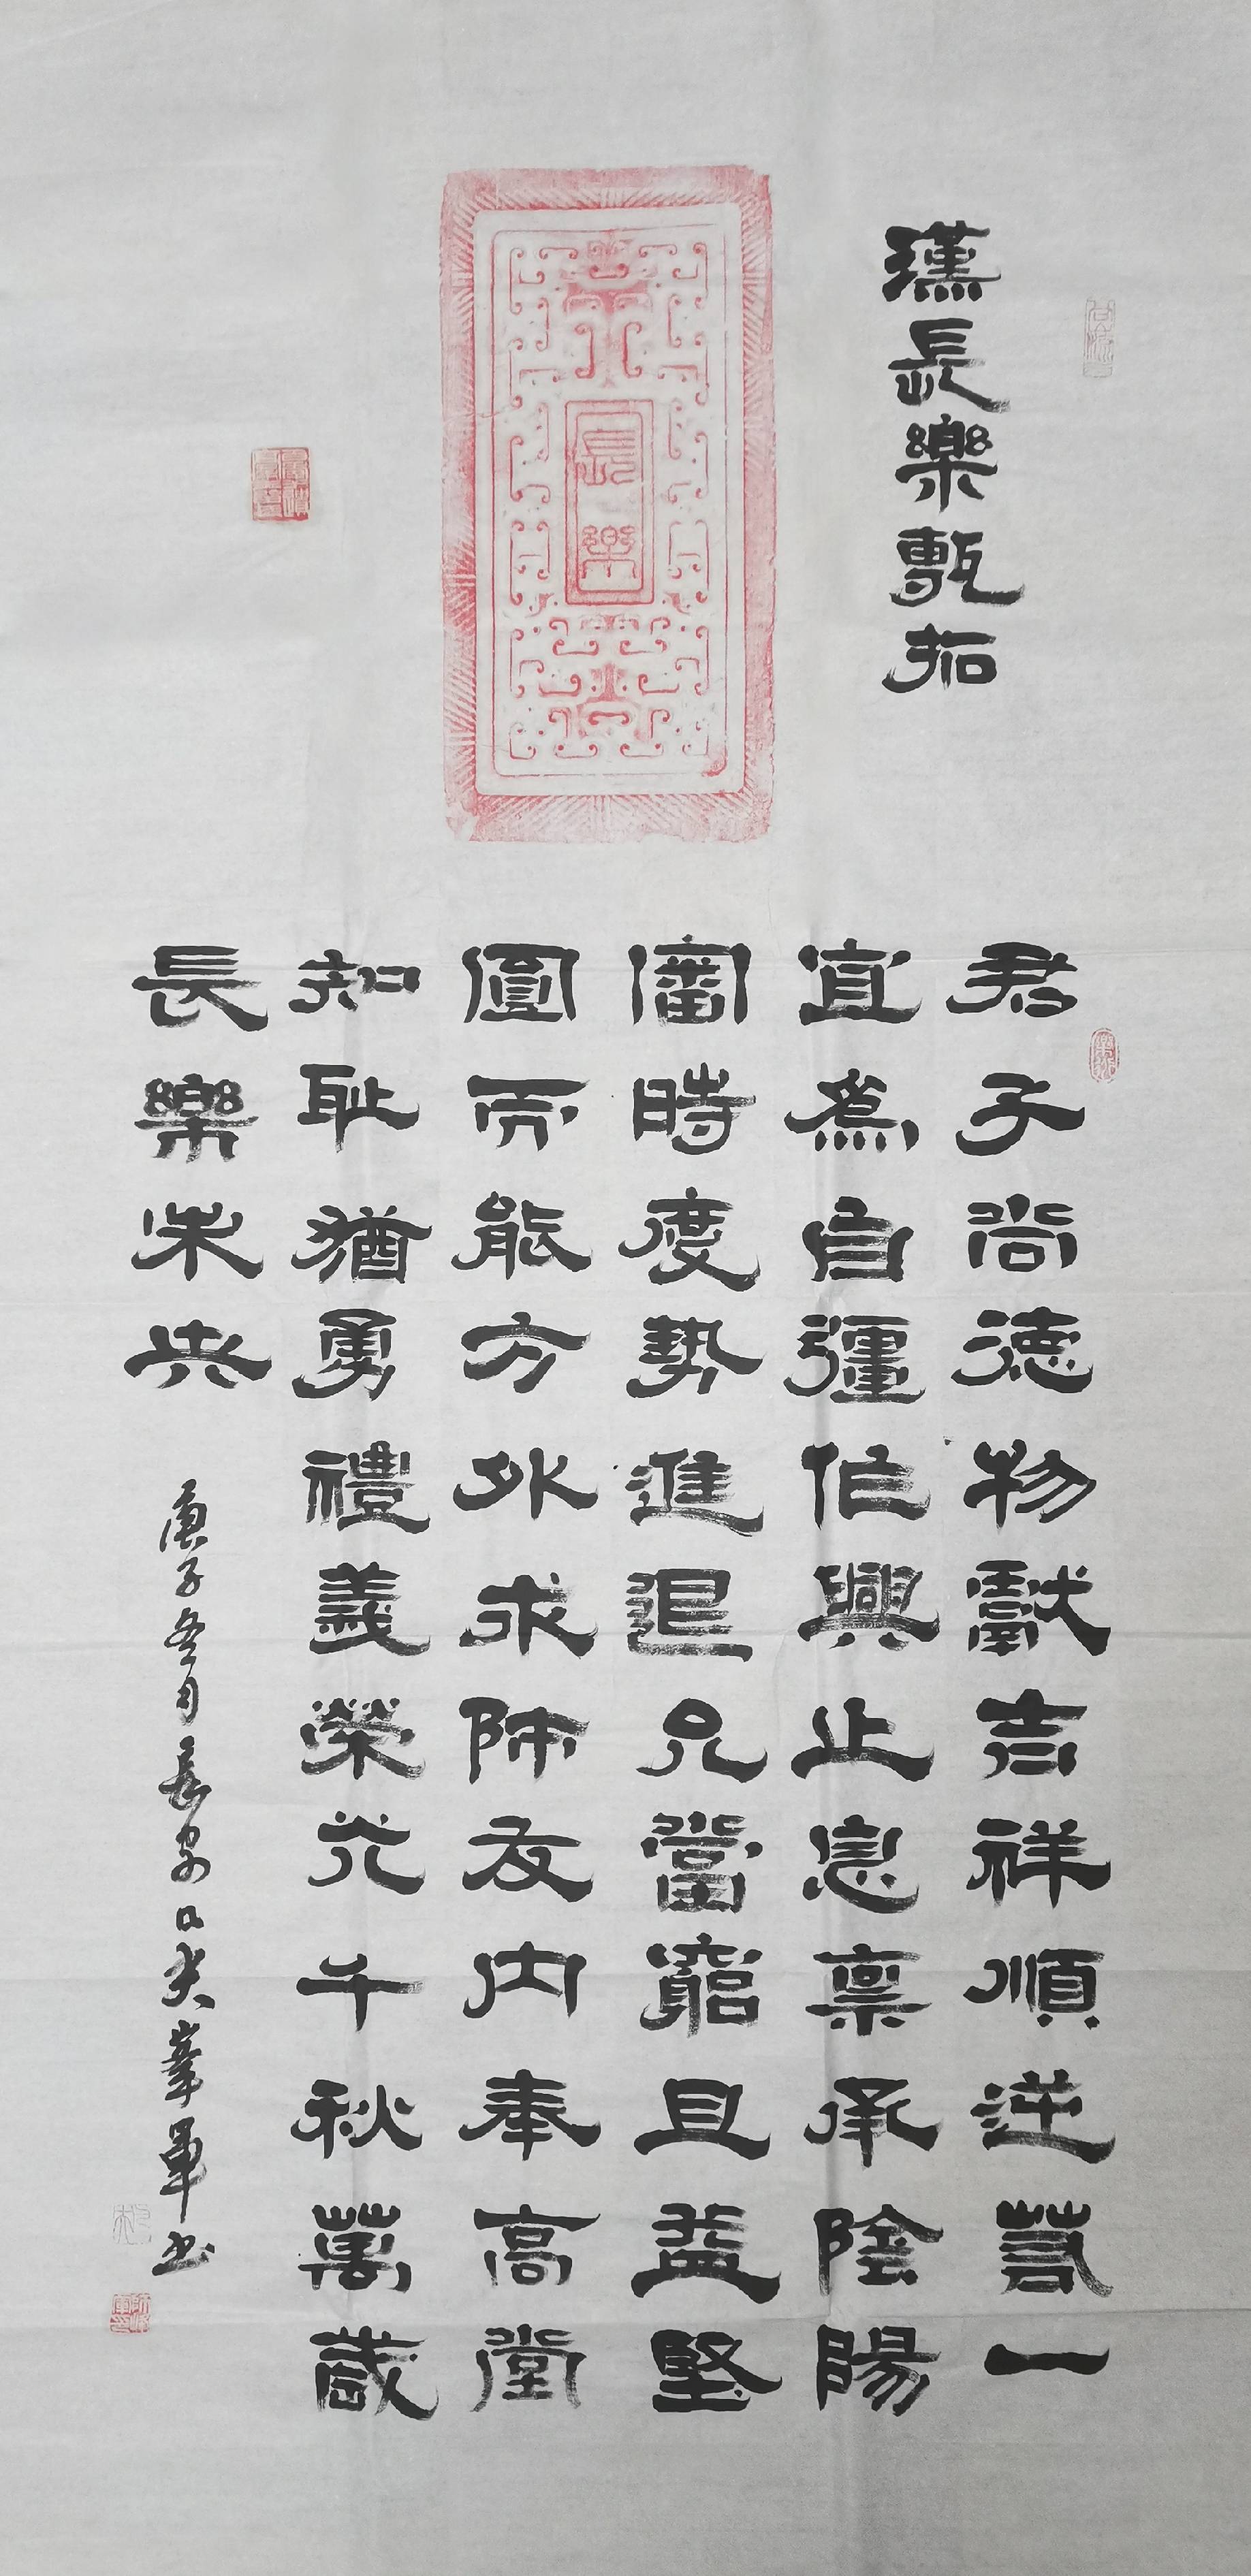 漢長樂甎拓
長樂
君子尚德物獻吉祥順逆若一
宜為自彊作興止息禀承陰陽
審時度勢進退允當窮且益堅
圓而能方外求師友内奉高堂
知恥猶勇禮義榮光千秋萬歲
長樂未央
庚子冬月長安
軍书